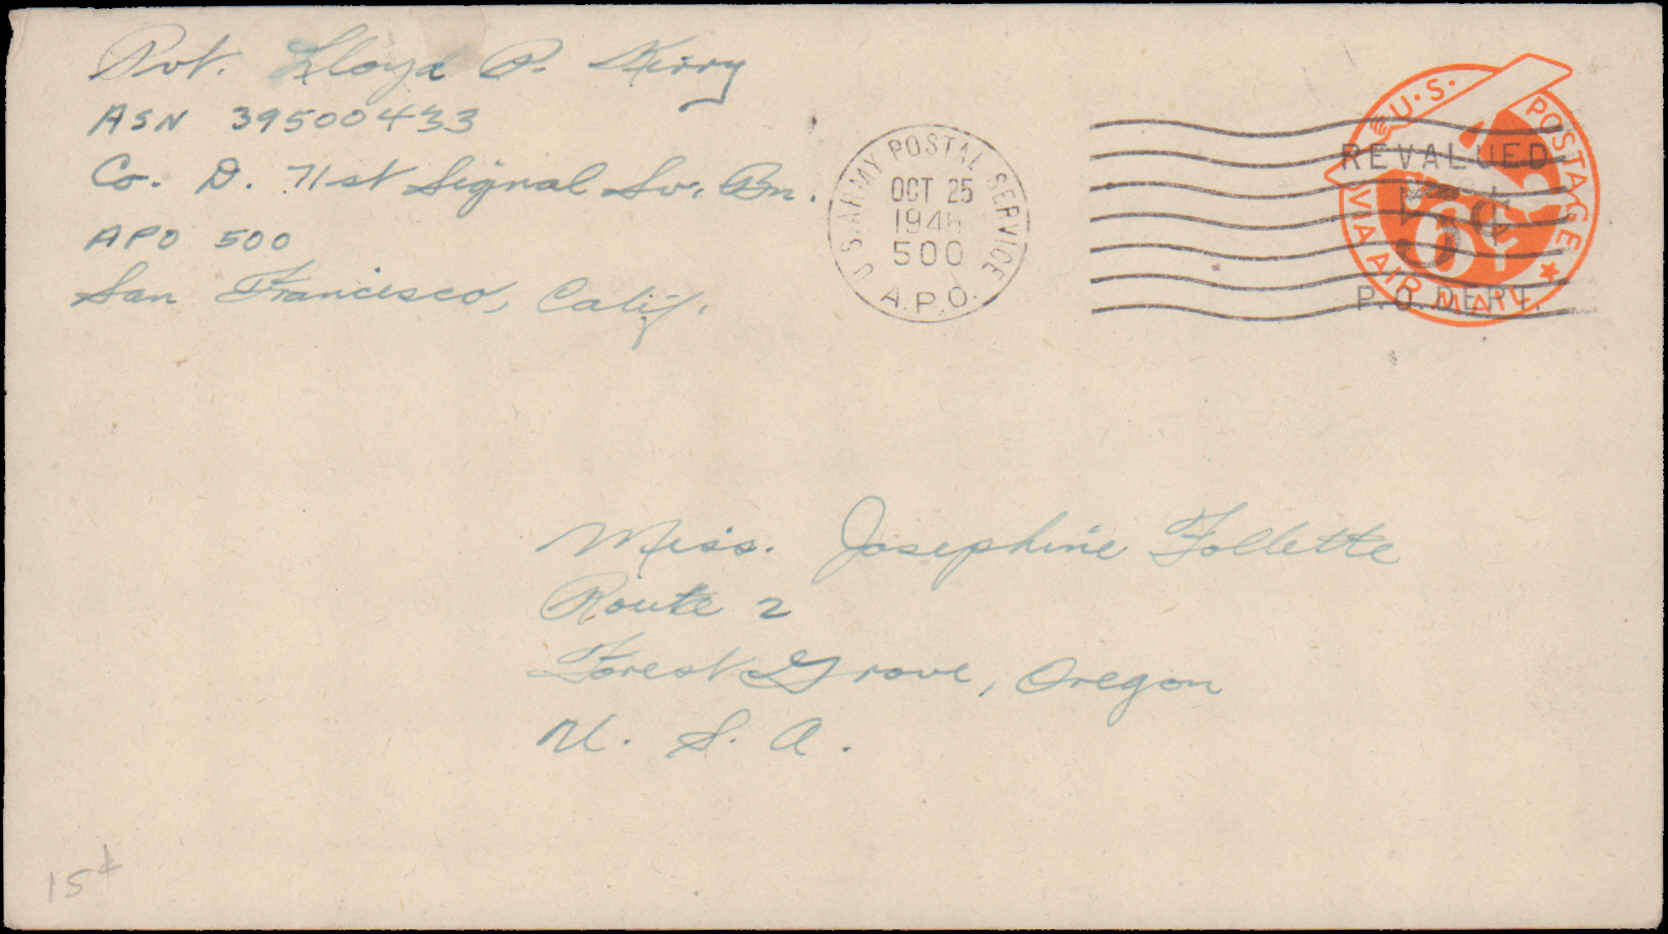 Pvt. Lloyd P. Kirry
ASN 39500433
Co. D. 71st Signal Sv. Bn.
APO 500
San Francisco, Calif.
U.S. ARMY POSTAL SERVICE
OCT 25
1946
500
A.P.O.
U.S. POSTAGE
REVALUED
5¢
6¢
P.O. DEPT.
VIA AIR MAIL
Miss. Josephine Follette
Route 2
Forest Grove, Oregon
U. S. A.
15¢